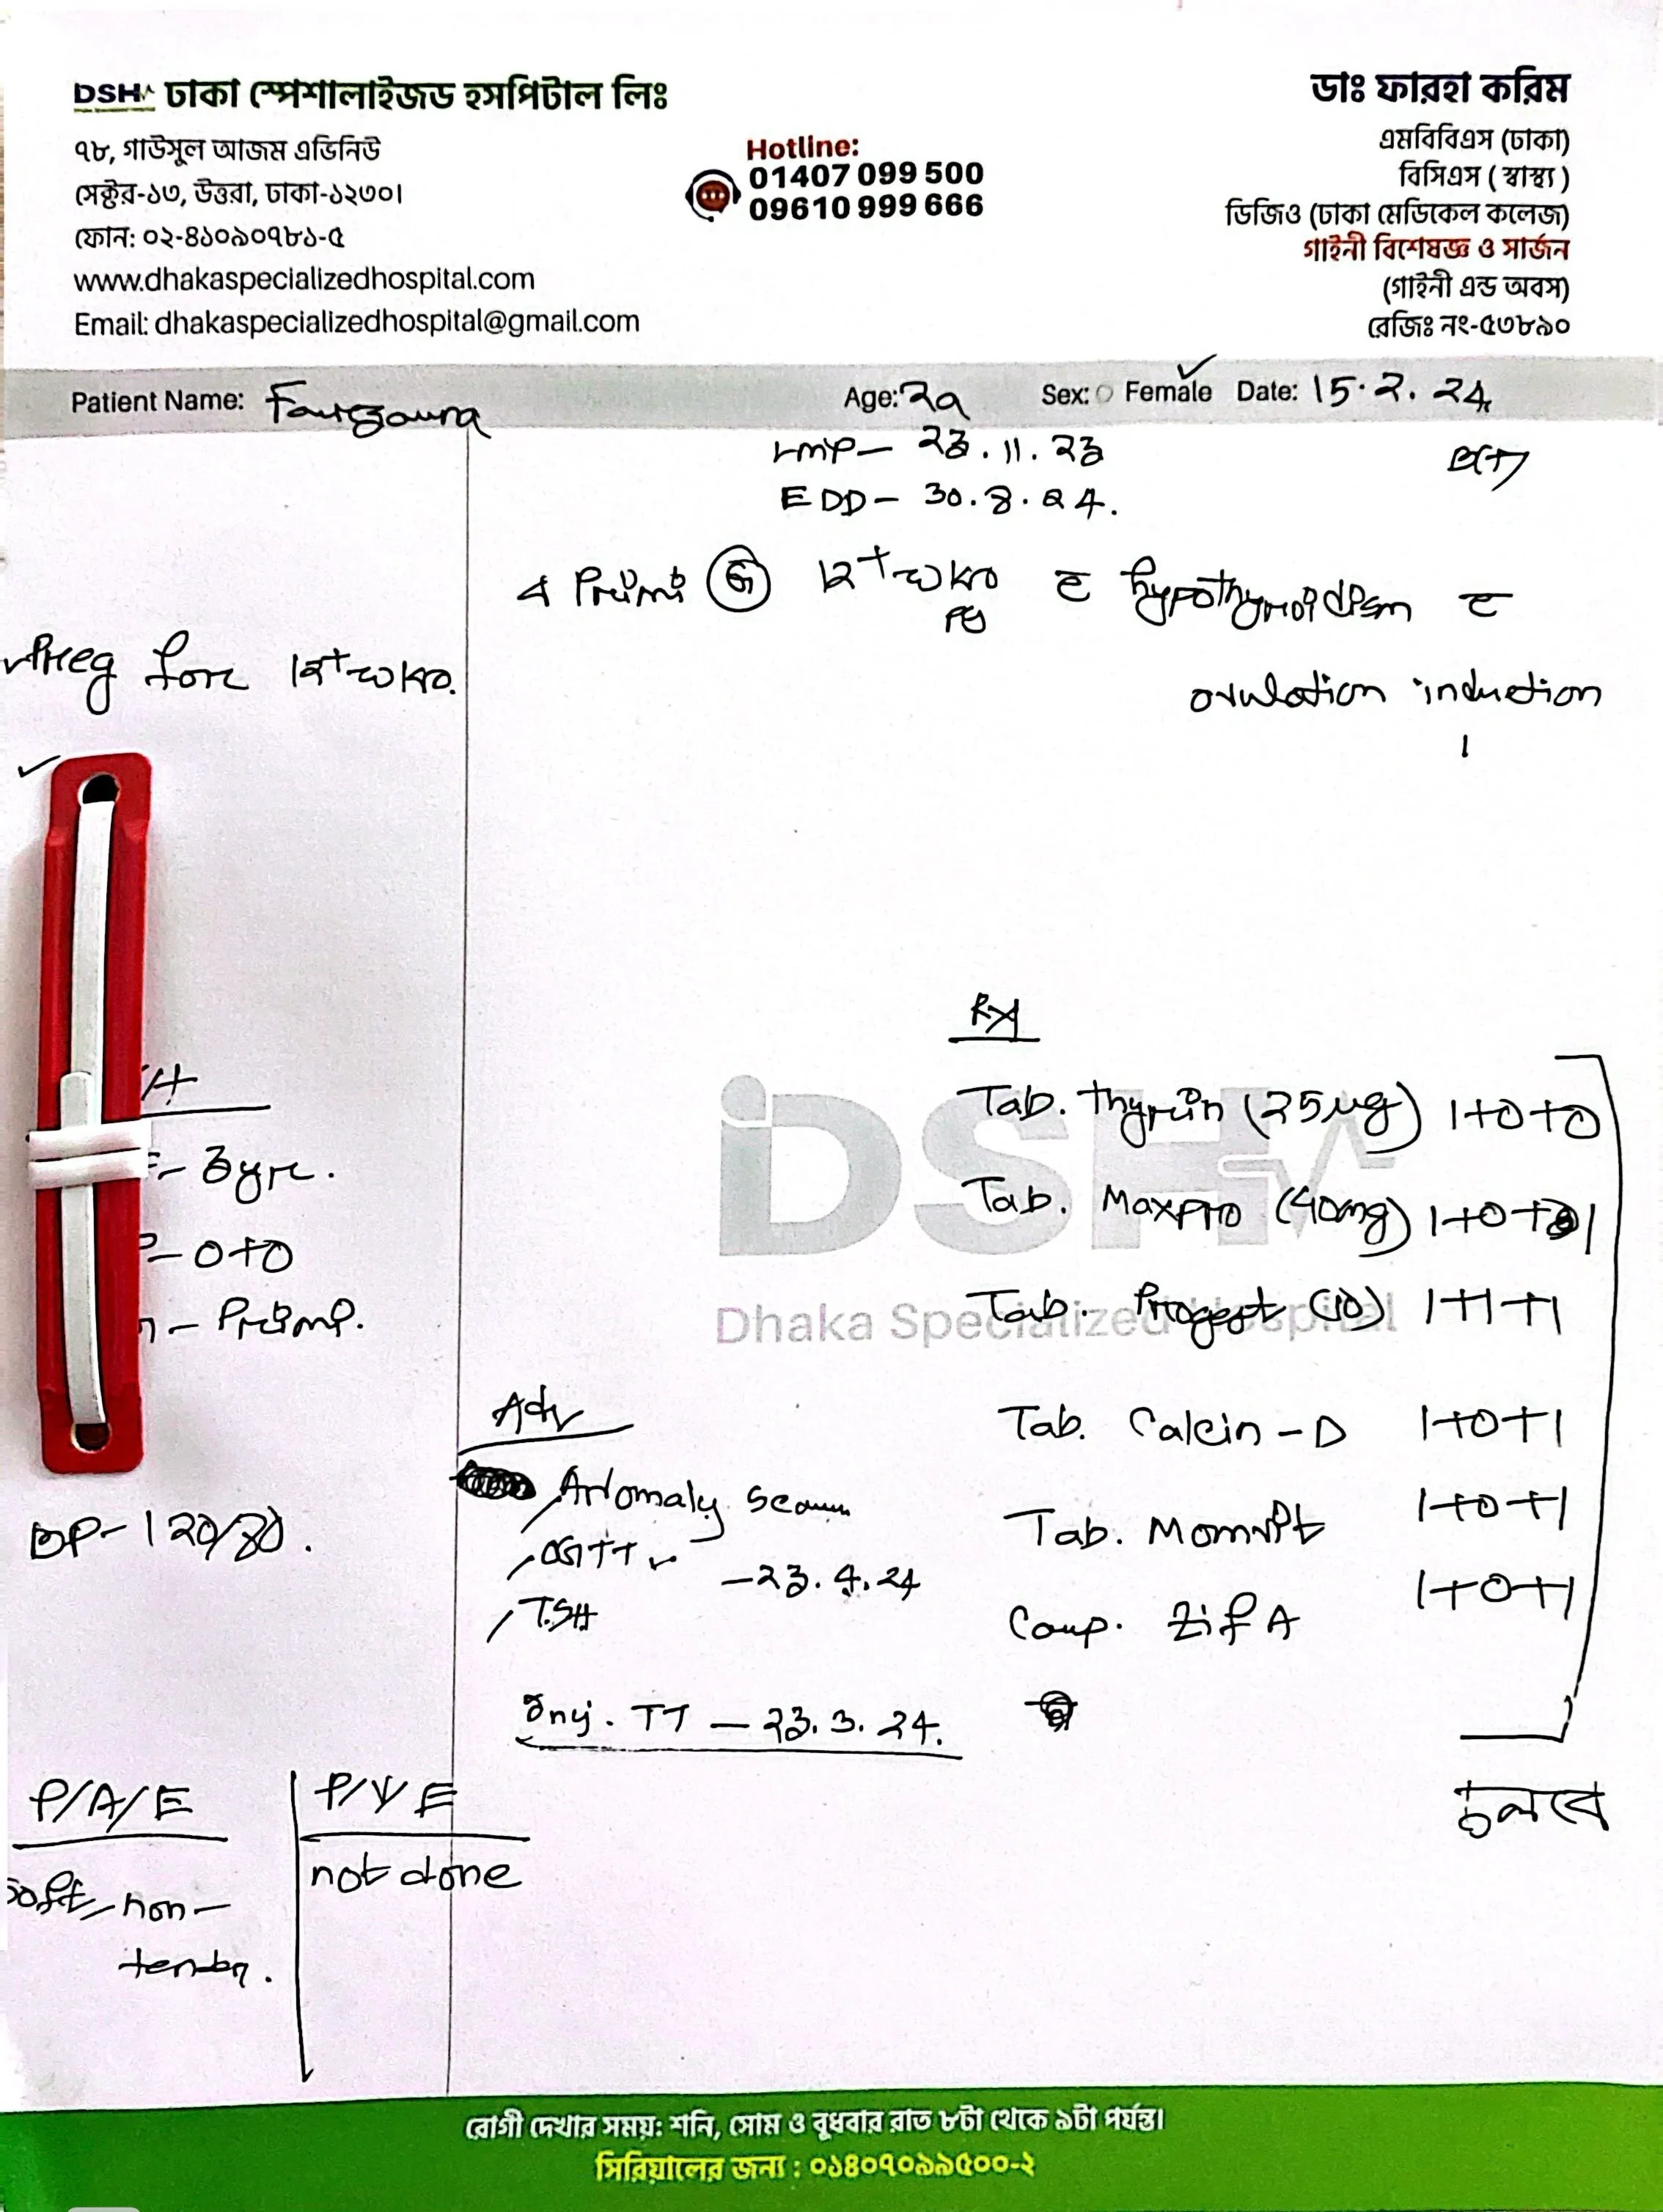 DSH ঢাকা স্পেশালাইজড হসপিটাল লিঃ
৭৮, গাউসুল আজম এভিনিউ
সেক্টর-১৩, উত্তরা, ঢাকা-১২৩০।
ফোন: ০২-৪১০৯০৭৮১-৫
www.dhakaspecializedhospital.com
Email: dhakaspecializedhospital@gmail.com
Hotline:
01407 099 500
09610 999 666
ডাঃ ফারহা করিম
এমবিবিএস (ঢাকা)
বিসিএস ( স্বাস্থ্য )
ডিজিও (ঢাকা মেডিকেল কলেজ)
গাইনী বিশেষজ্ঞ ও সার্জন
(গাইনী এন্ড অবস)
রেজিঃ নং-৫৩৮৯০
Patient Name: Age: Sex: Female Date: 15.2.24
LMP- 23.11.23
EDD- 30.8.24.
12+ wks Pg c hypothyroidism c
ovulation induction
Preg for 12+ wks.
- 3yr.
- 0+0
- Primi.
BP- 120/80.
P/A/E
Soft, non-
tender.
P/V/E
not done
Adv
Anomaly Scan
OGTT
- 23.4.24
TSH
Inj. TT - 23.3.24.
Rx
Tab. thyrin (25µg) 1+0+0
Tab. Maxpro (40mg) 1+0+1
Tab. Progest (10) 1+1+1
Tab. Calcin-D 1+0+1
Tab. Momvit 1+0+1
Cap. Zif A 1+0+1
চলবে
DSH
Dhaka Specialized Hospital
রোগী দেখার সময়: শনি, সোম ও বুধবার রাত ৮টা থেকে ৯টা পর্যন্ত।
সিরিয়ালের জন্য : ০১৪০৭০৯৯৫০০-২